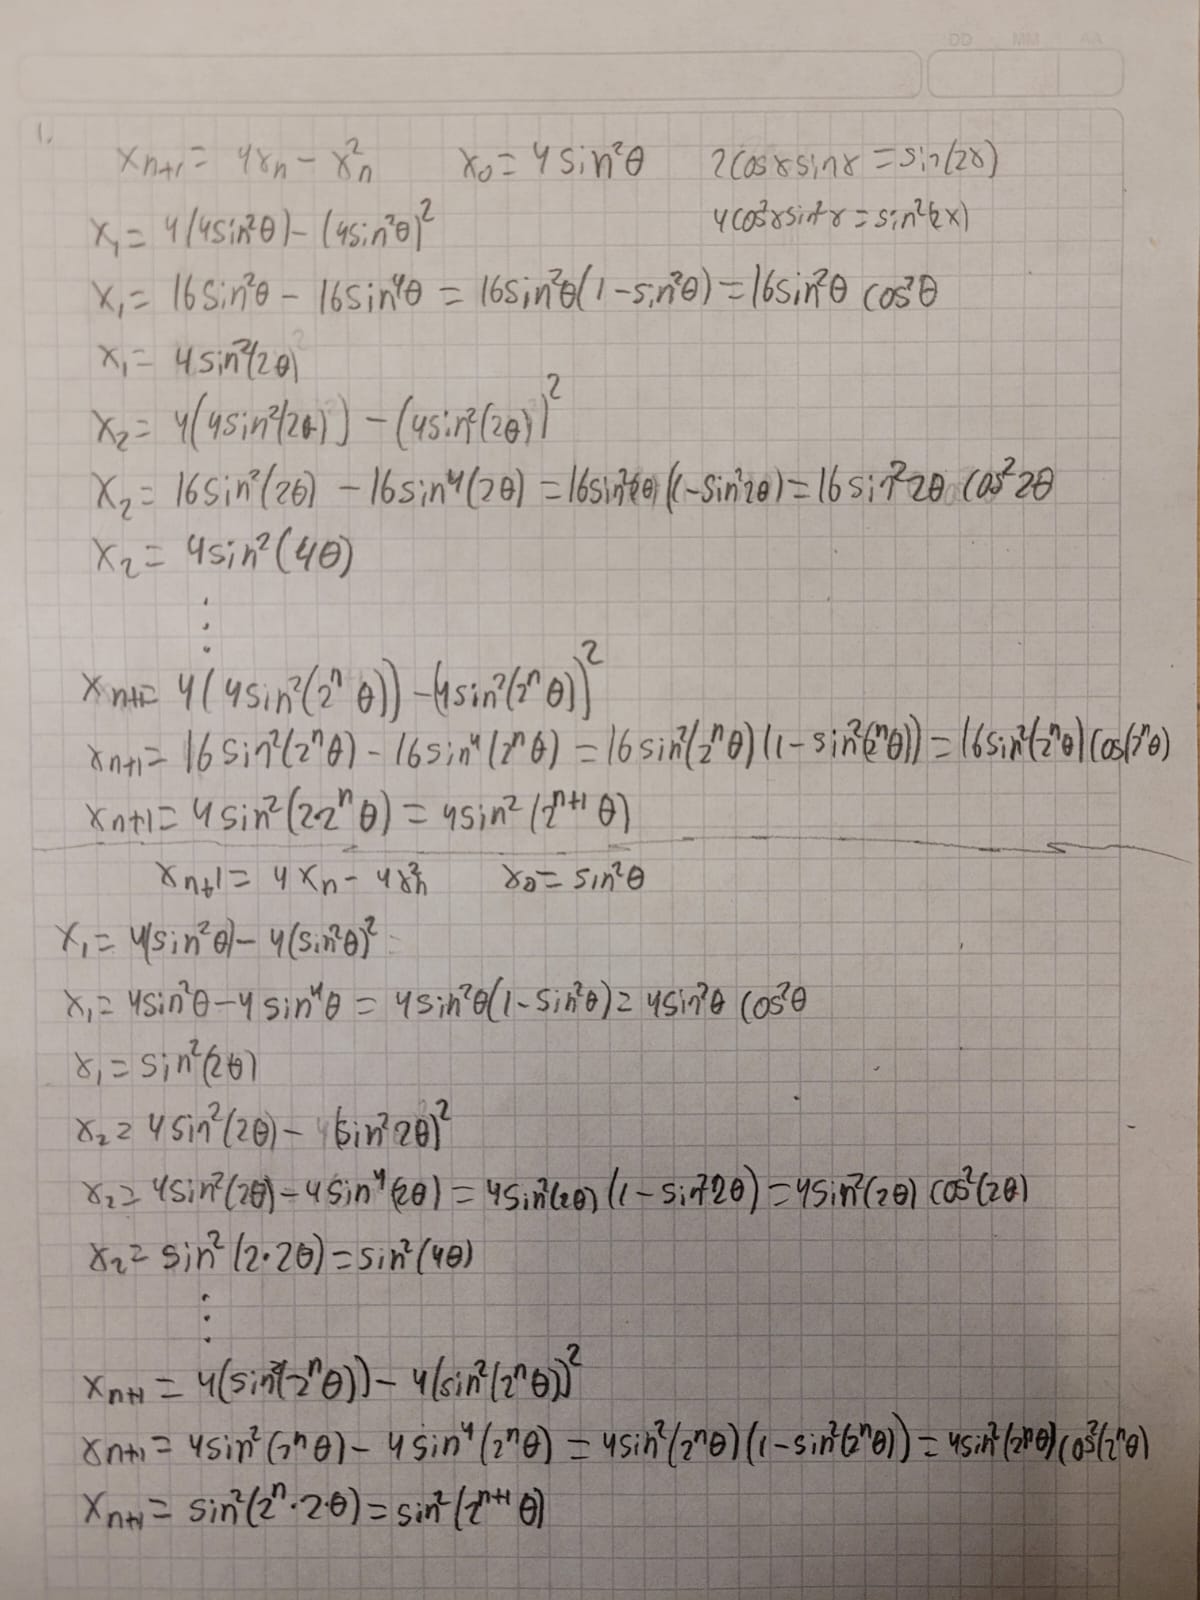 DD MM AA
1.
xₙ₊₁ = 4xₙ - x²ₙ x₀ = 4 sin²θ 2cosx sinx = sin(2x)
4cos²x sin²x = sin²(2x)
x₁ = 4(4sin²θ) - (4sin²θ)²
x₁ = 16sin²θ - 16sin⁴θ = 16sin²θ(1 - sin²θ) = 16sin²θ cos²θ
x₁ = 4sin²(2θ)
x₂ = 4(4sin²(2θ)) - (4sin²(2θ))²
x₂ = 16sin²(2θ) - 16sin⁴(2θ) = 16sin²(2θ)(1 - sin²2θ) = 16sin²2θ cos²2θ
x₂ = 4sin²(4θ)
⋮
xₙ₊₁ = 4(4sin²(2ⁿθ)) - (4sin²(2ⁿθ))²
xₙ₊₁ = 16sin²(2ⁿθ) - 16sin⁴(2ⁿθ) = 16sin²(2ⁿθ)(1 - sin²(2ⁿθ)) = 16sin²(2ⁿθ)cos(2ⁿθ)
xₙ₊₁ = 4sin²(22ⁿθ) = 4sin²(2ⁿ⁺¹θ)
xₙ₊₁ = 4xₙ - 4x²ₙ x₀ = sin²θ
x₁ = 4(sin²θ) - 4(sin²θ)²
x₁ = 4sin²θ - 4sin⁴θ = 4sin²θ(1 - sin²θ) = 4sin²θ cos²θ
x₁ = sin²(2θ)
x₂ = 4sin²(2θ) - 4(sin²2θ)²
x₂ = 4sin²(2θ) - 4sin⁴(2θ) = 4sin²(2θ)(1 - sin²2θ) = 4sin²(2θ) cos²(2θ)
x₂ = sin²(2·2θ) = sin²(4θ)
⋮
xₙ₊₁ = 4(sin²(2ⁿθ)) - 4(sin²(2ⁿθ))²
xₙ₊₁ = 4sin²(2ⁿθ) - 4sin⁴(2ⁿθ) = 4sin²(2ⁿθ)(1 - sin²(2ⁿθ)) = 4sin²(2ⁿθ)cos²(2ⁿθ)
xₙ₊₁ = sin²(2ⁿ·2·θ) = sin²(2ⁿ⁺¹θ)